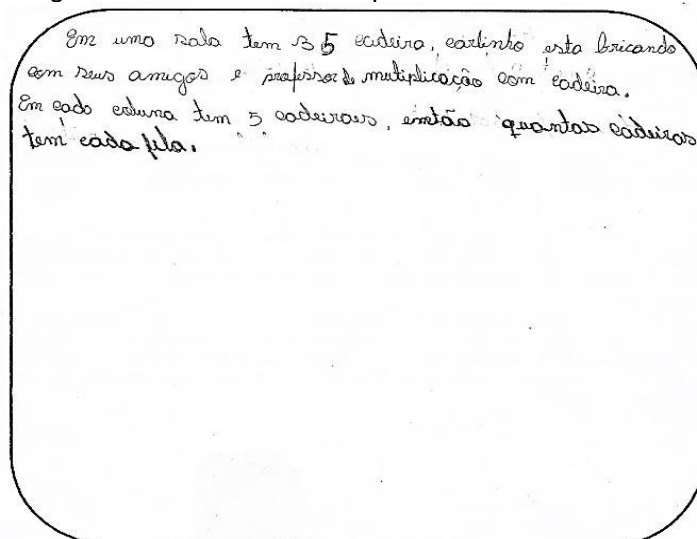 Em uma sala tem 35 cadeira, carlinho esta bricando
com seus amigos e professor de mutiplicação com cadeira.
Em cado coluna tem 5 cadeiraes, então quantas cadeiras
tem cada fila.